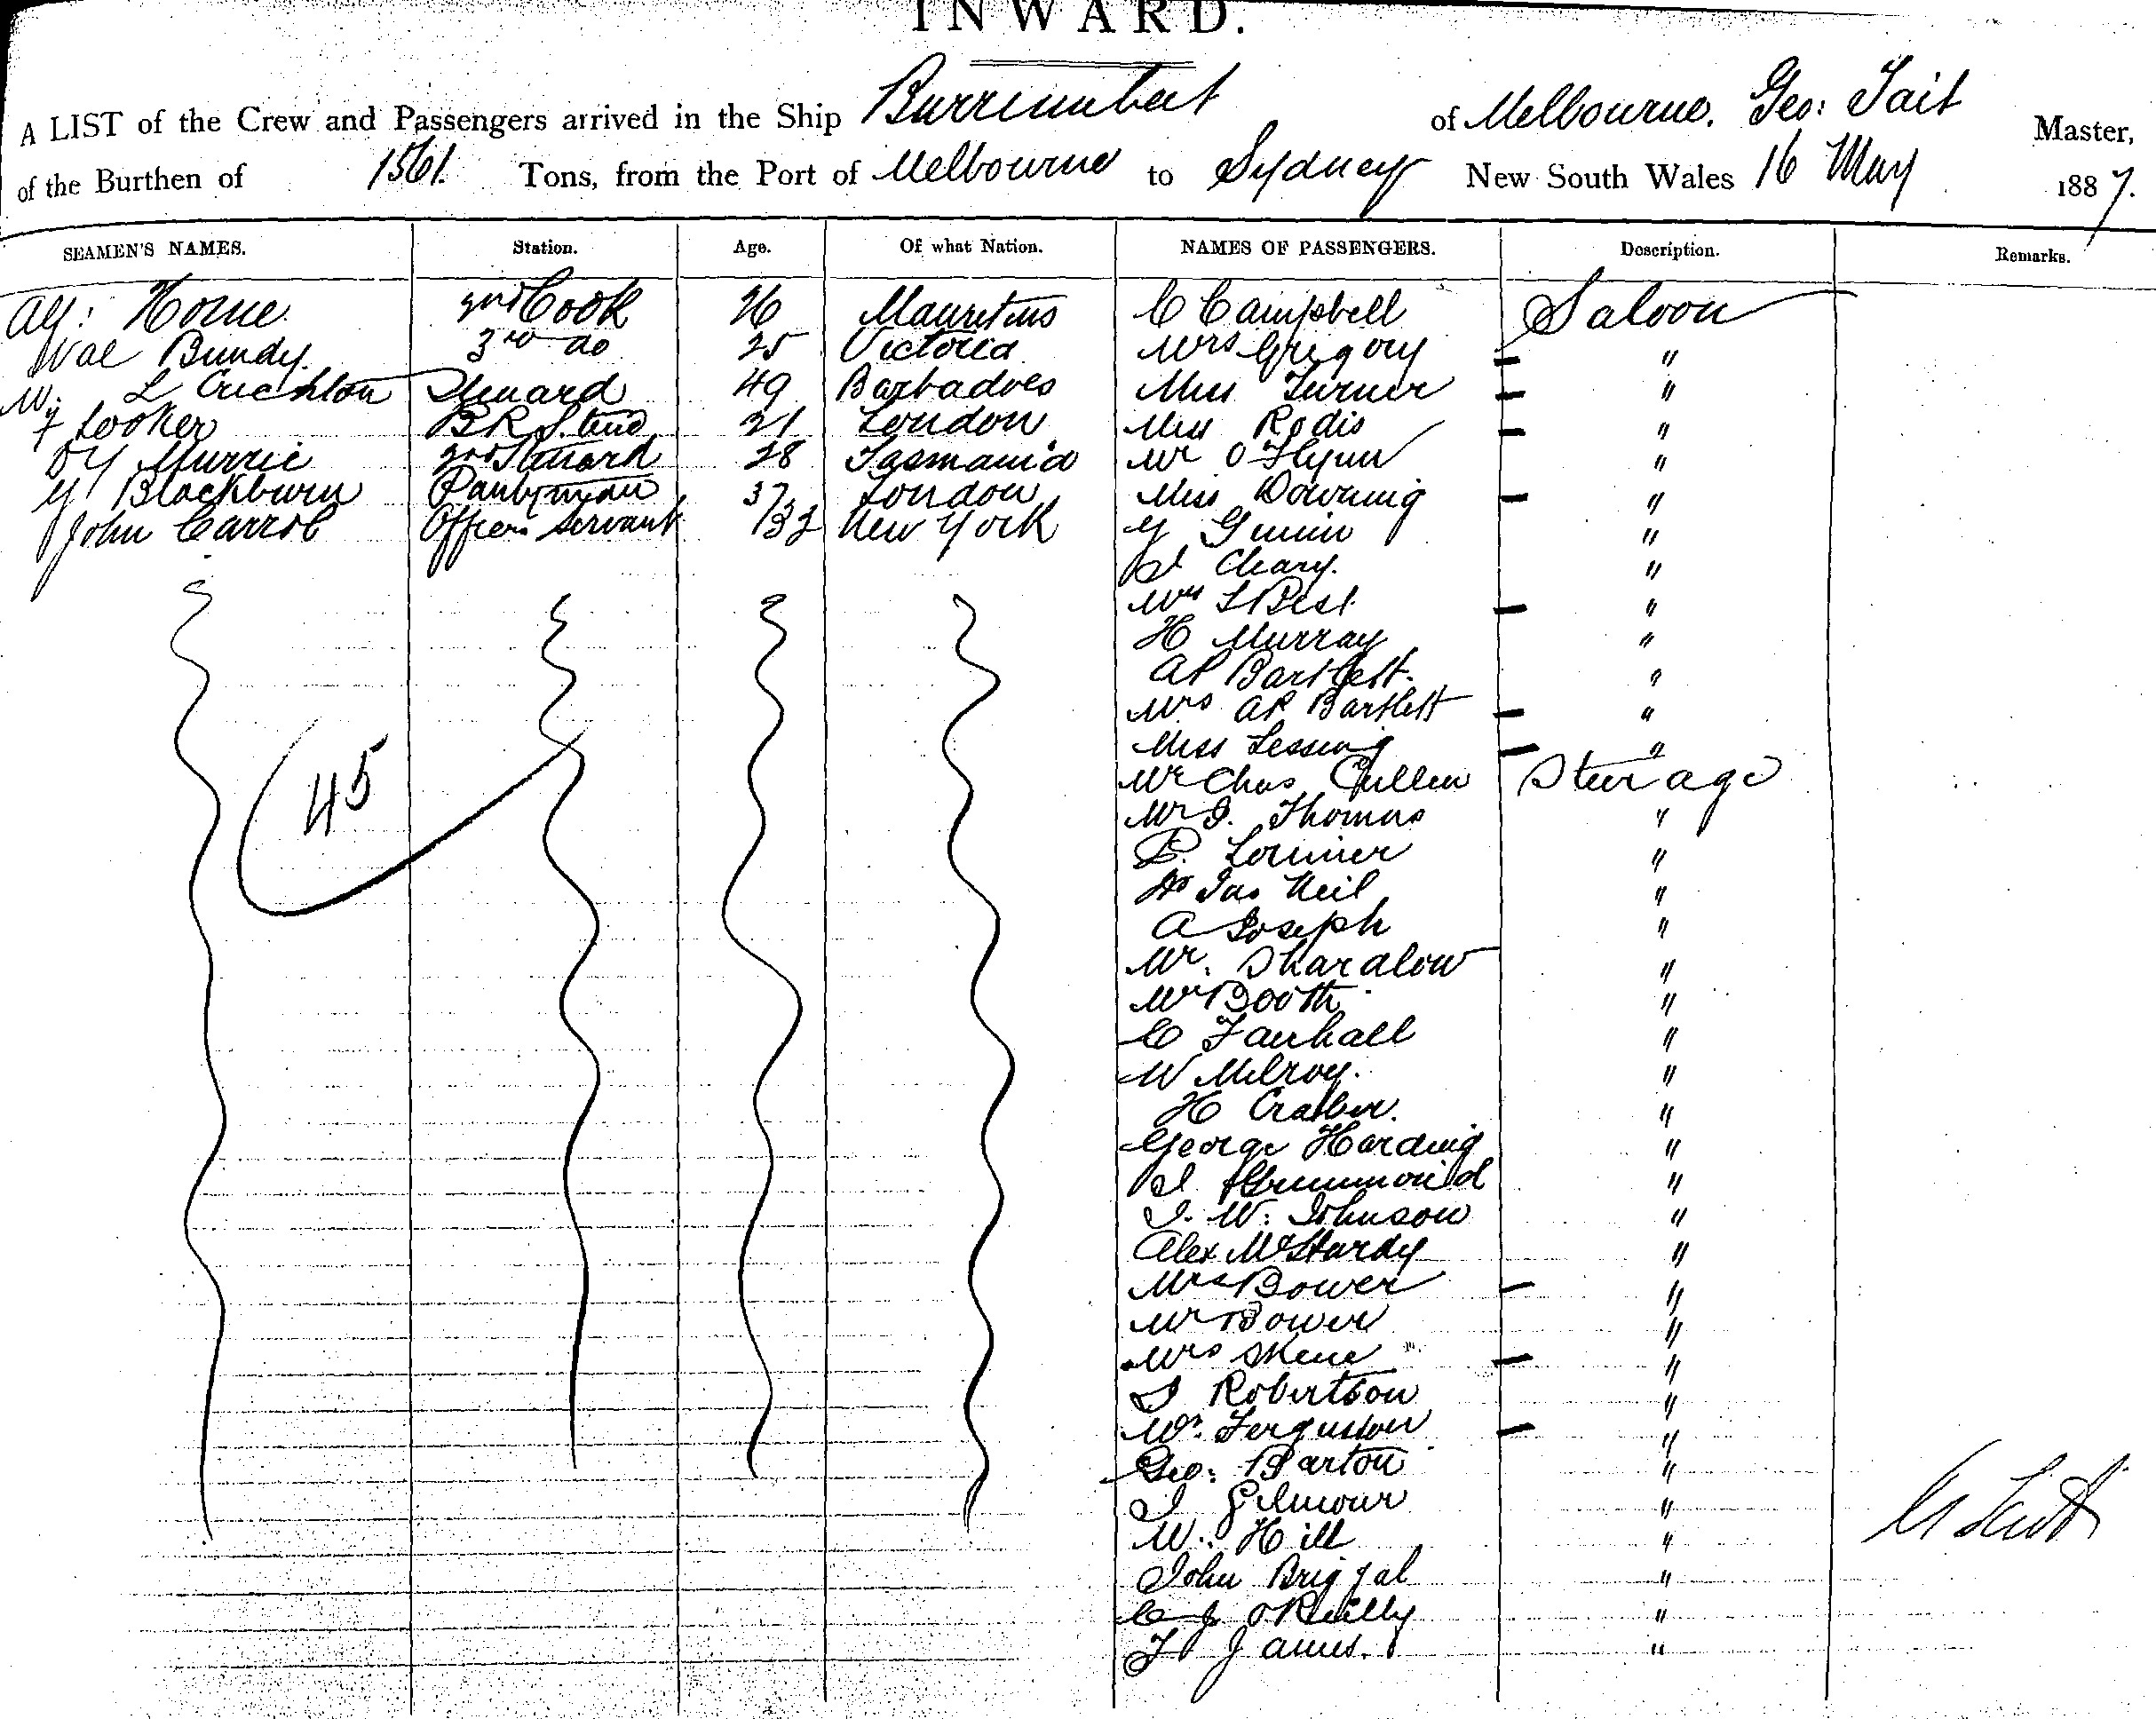 INWARD.
A LIST of the Crew and Passengers arrived in the Ship Burrumbeet of Melbourne. Geo: Tait Master,
of the Burthen of 1561. Tons, from the Port of Melbourne to Sydney New South Wales 16 May 1887.
SEAMEN'S NAMES. Station. Age. Of what Nation. NAMES OF PASSENGERS. Description. Remarks.
Alf: Horne 2nd Cook 26 Mauritius C Campbell Saloon
Wal Bundy. 3rd do 25 Victoria Mrs Gregory "
W. L Crichton Steward 49 Barbadoes Miss Turner "
F Looker B R Stew 21 London Miss Rodis "
Murrie 2nd Steward 28 Tasmania Mr O'Flynn "
Blackburn Pantryman 37 London Miss Downing "
John Carrol Officers Servant 32 New York "
Cleary. "
Best "
H Murray "
AP Bartlett. "
Mrs AP Bartlett "
Miss Lessing "
45
Mr Chas Cullen Steerage
Mr J. Thomas "
Lorimer "
Jas Neil "
A Joseph "
Mr. Shardlow "
Mr Booth "
C Fairhall "
W Milroy. "
H "
George Harding "
J Drummond "
J. W. Johnson "
Alex McHardy "
Mrs Bower "
Mr Bower "
Mrs Skene "
J Robertson "
Ferguson "
Geo: Barton "
J Gilmour "
W. Hill "
John Briggal "
C J O'Reilly "
F James. "